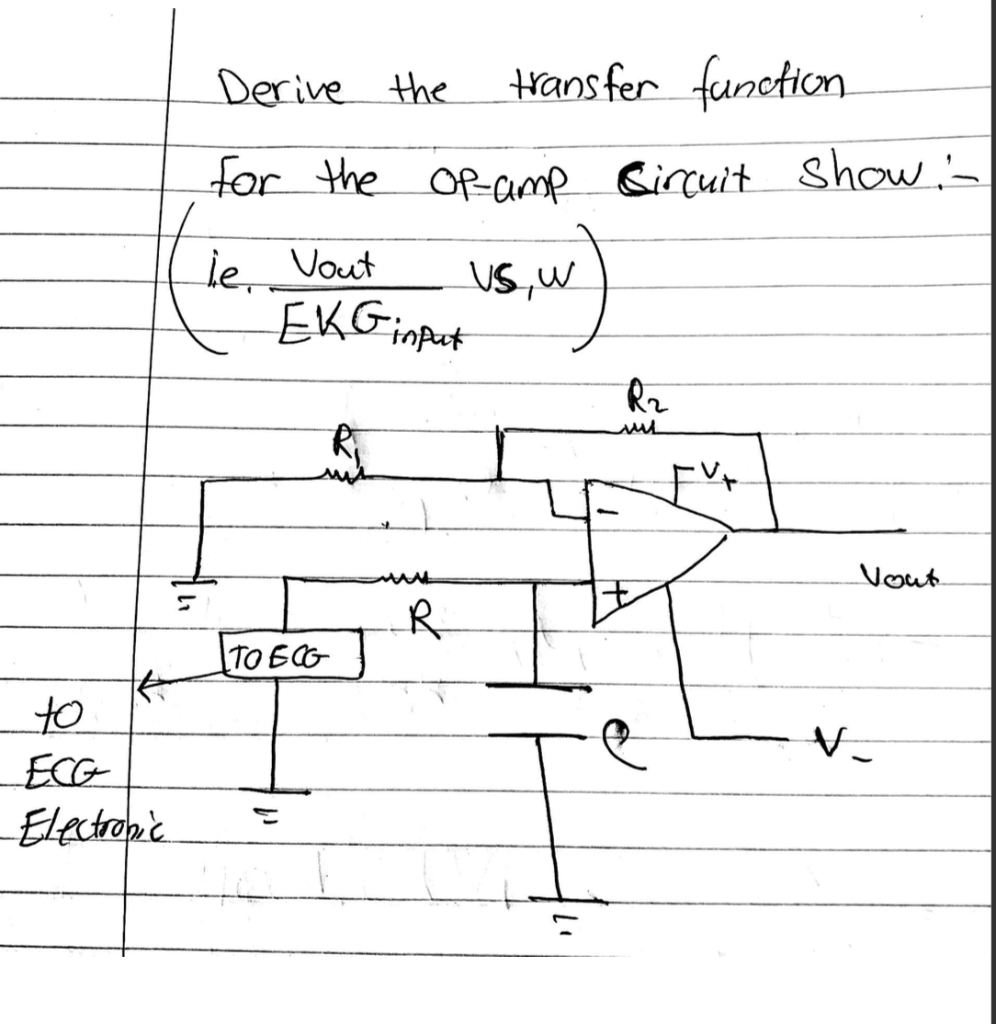 Derive the transfer function
for the OP-amp Circuit Show :-
(i.e. Vout / EKGinput vs, w)
R2
R1
V+
-
Vout
+
R
TO ECG
to
ECG
Electronic
C
V-